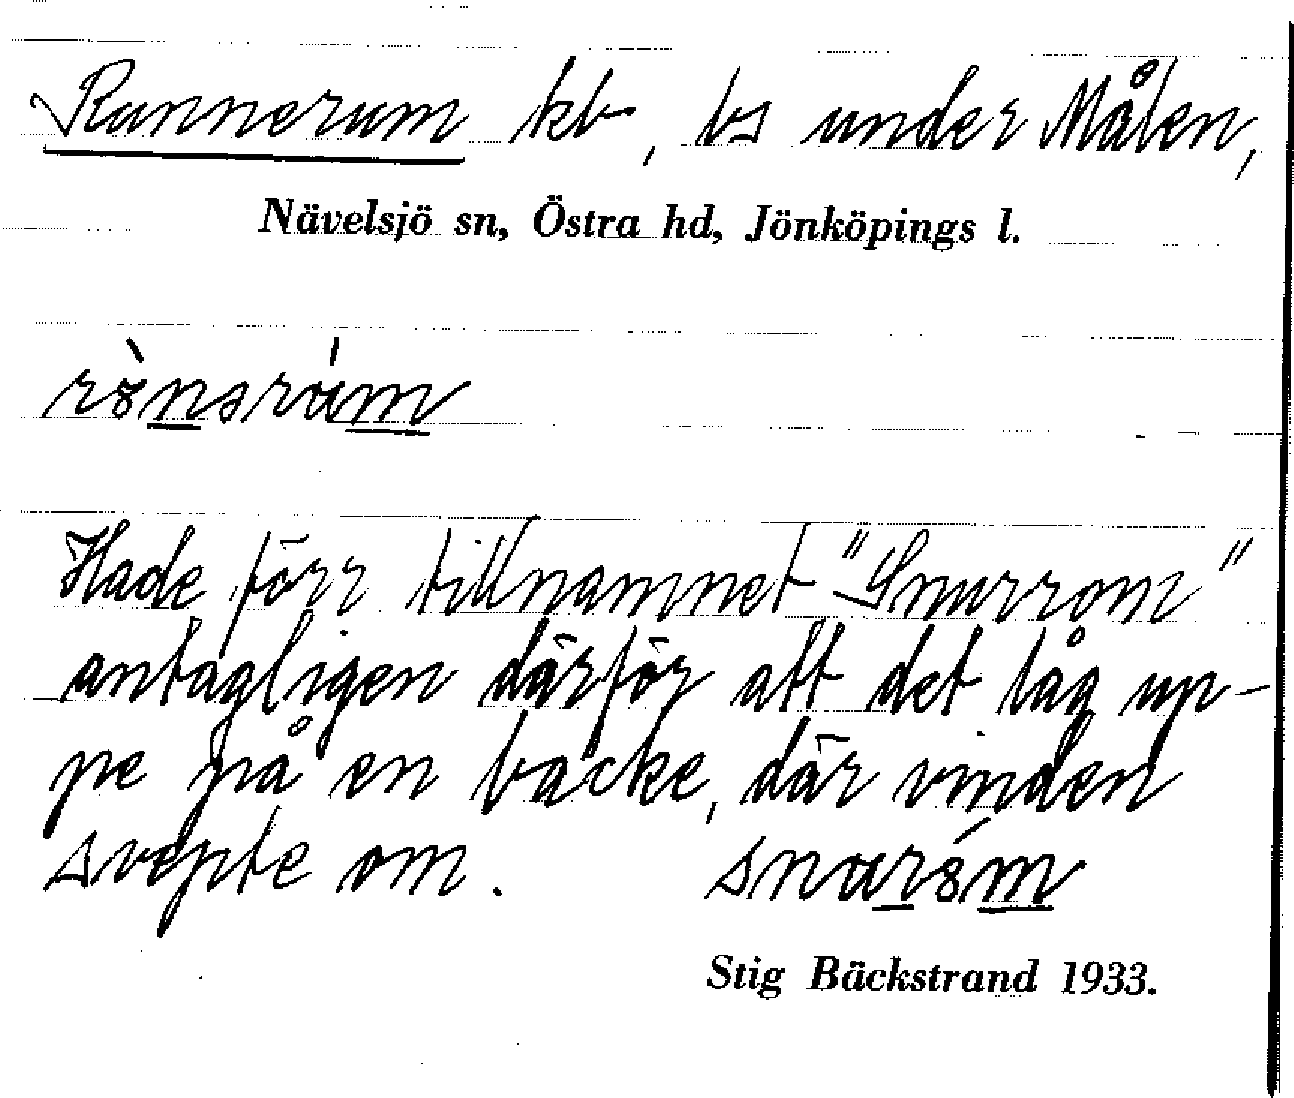 Runnerum kb, bs under Målen,
Nävelsjö sn, Östra hd, Jönköpings l.
Hade förr tillnamnet "Snurrom"
antagligen därför att det låg up-
pe på en backe, där vinden
svepte om.
Stig Bäckstrand 1933.